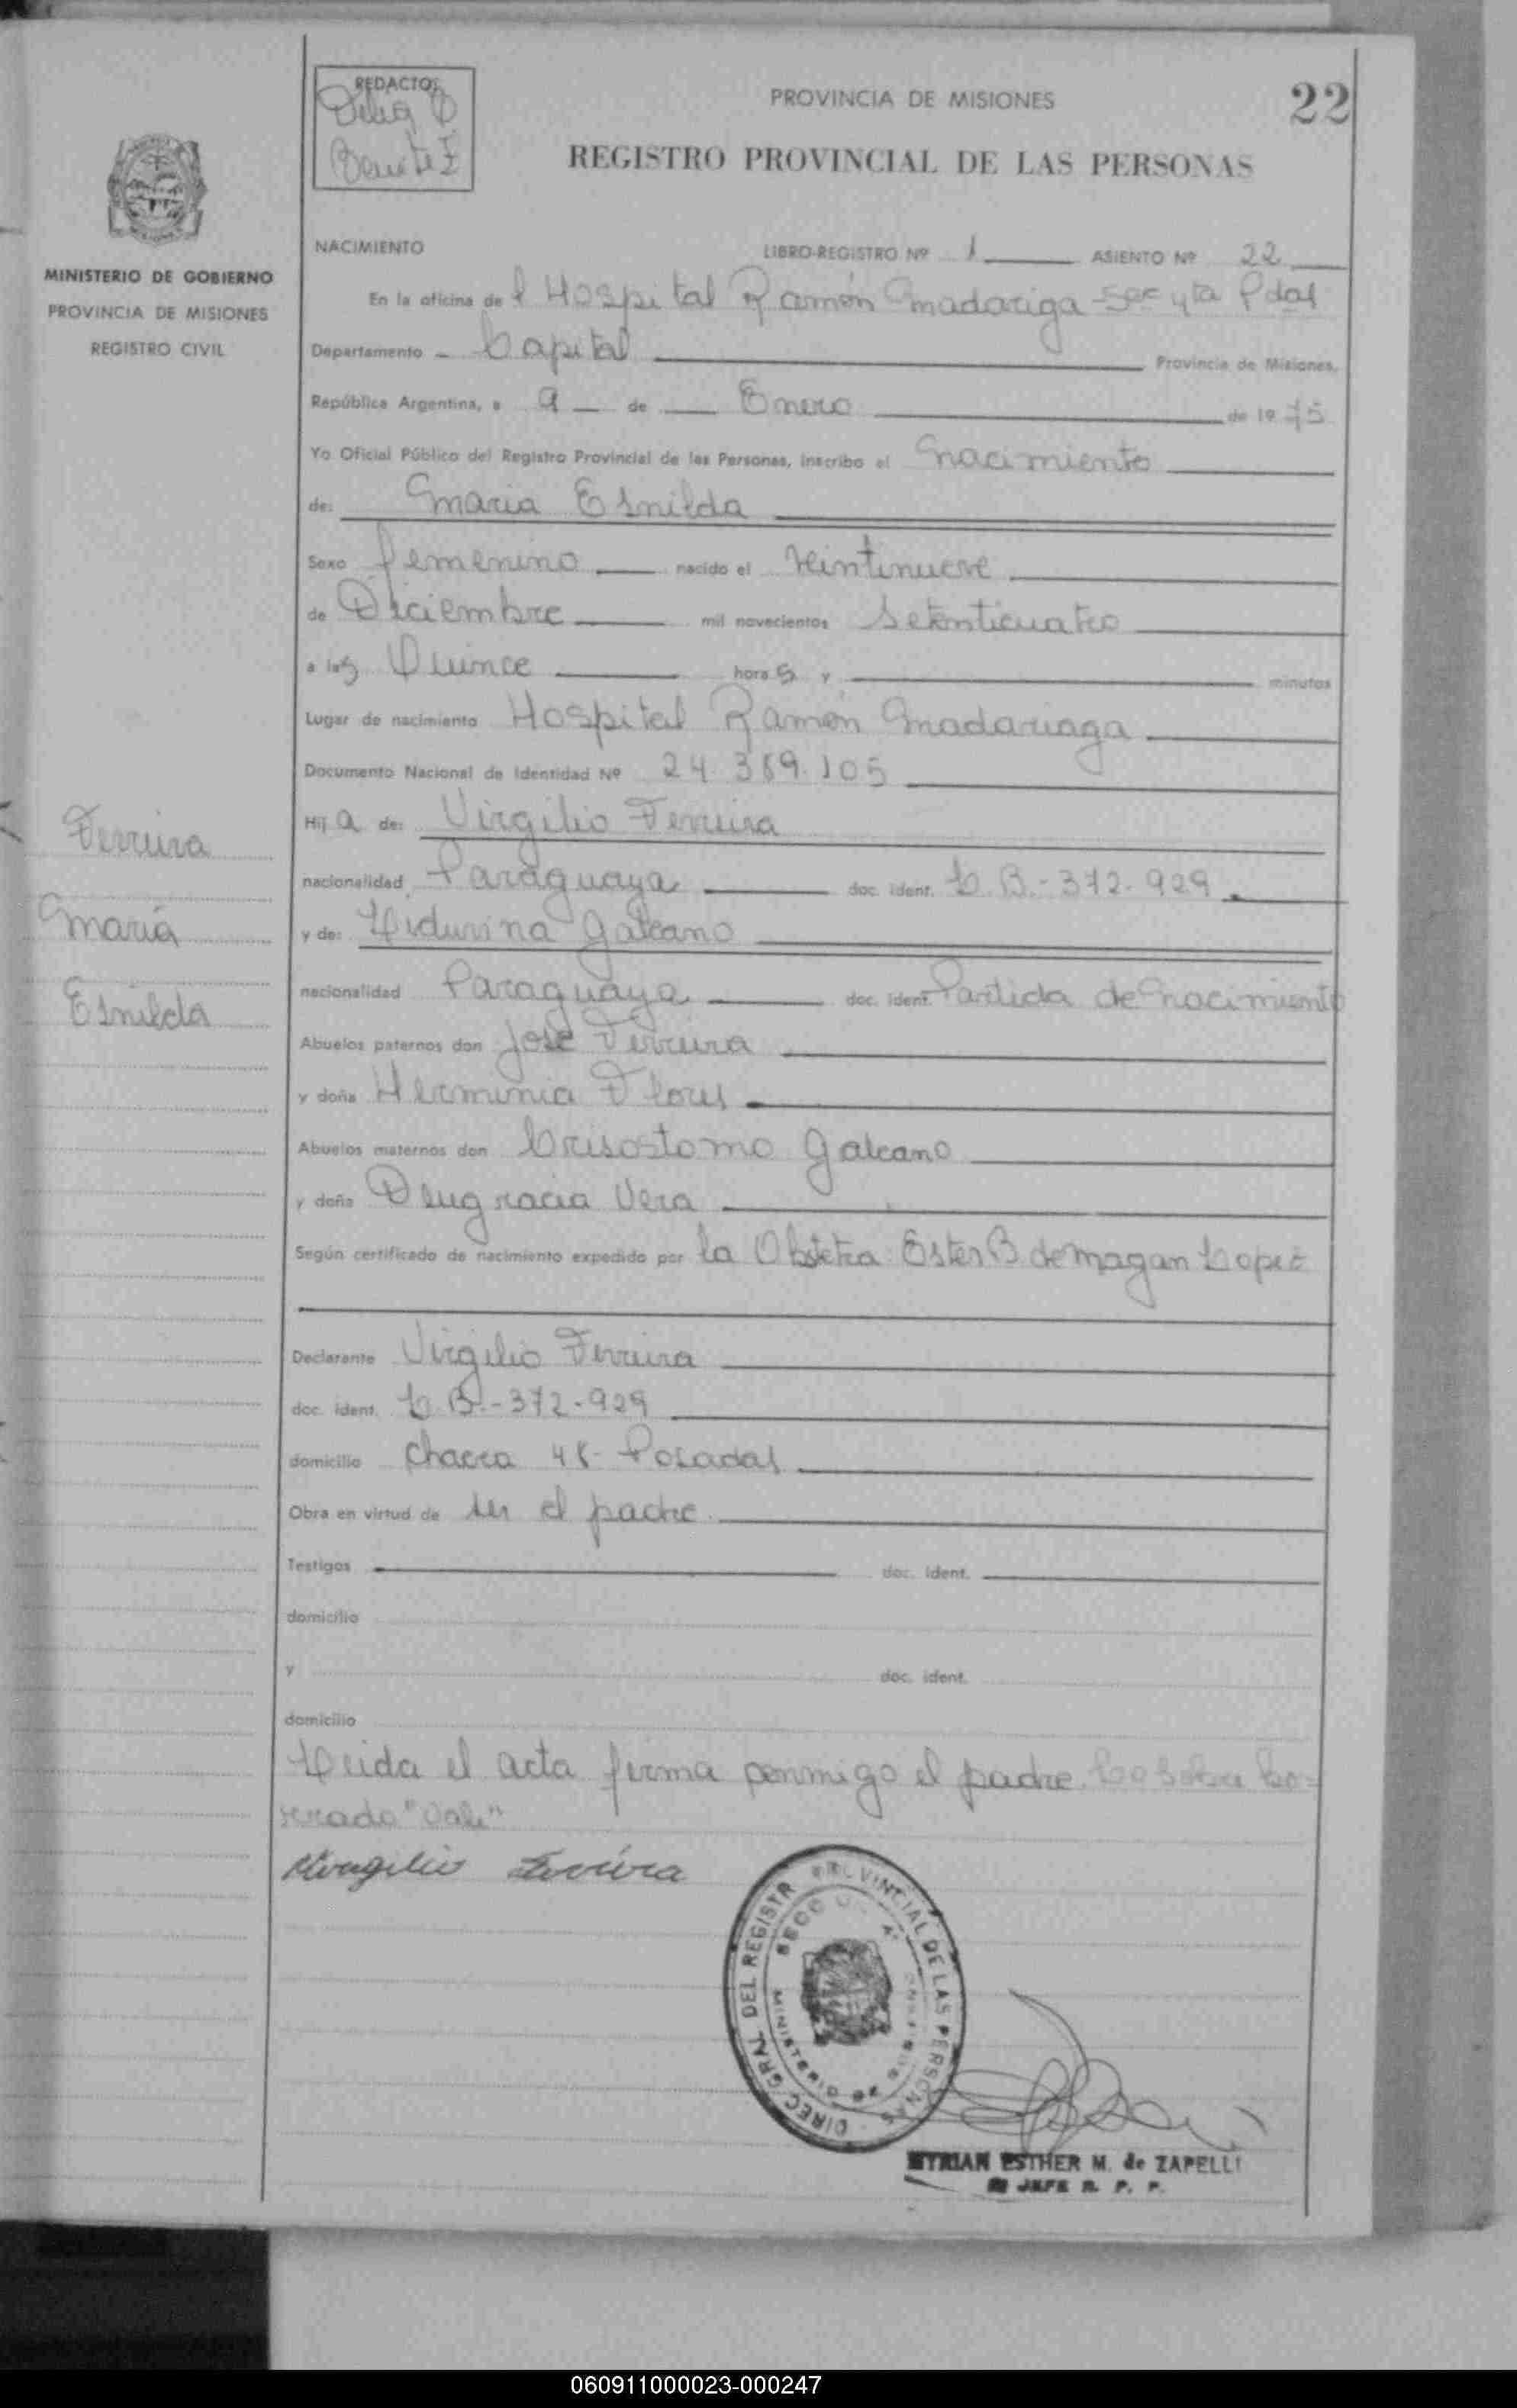 REDACTOR
Delia B
Benitez
PROVINCIA DE MISIONES
22
REGISTRO PROVINCIAL DE LAS PERSONAS
MINISTERIO DE GOBIERNO
PROVINCIA DE MISIONES
REGISTRO CIVIL
NACIMIENTO LIBRO-REGISTRO Nº 1 ASIENTO Nº 22
En la oficina del Hospital Ramón Madariga Secc 4ta Pdas
Departamento Capital Provincia de Misiones,
República Argentina, a 9 de Enero de 1975
Yo Oficial Público del Registro Provincial de las Personas, inscribo el nacimiento
de: Maria Esnilda
Sexo femenino nacido el Veintinueve
de Diciembre mil novecientos Setenticuatro
a las Quince horas y minutos
Lugar de nacimiento Hospital Ramón Madariaga
Documento Nacional de Identidad Nº 24.389.105
Hija de: Virgilio Ferreira
nacionalidad Paraguaya doc. ident. C.B.-372.929
y de: Liduvina Galeano
nacionalidad Paraguaya doc. ident. Partida de nacimiento
Ferreira
Maria
Esnilda
Abuelos paternos don José Ferreira
y doña Herminia Flores
Abuelos maternos don Crisostomo Galeano
y doña Deugracia Vera
Según certificado de nacimiento expedido por la Obstetra Ester B de Magan Lopez
Declarante Virgilio Ferreira
doc. ident. C.B.-372-929
domicilio Chacra 48- Posadas
Obra en virtud de ser el padre
Testigos doc. ident.
domicilio
y doc. ident.
domicilio
Leida el acta firma conmigo el padre. Lo sobre bo=
rrado "Vale"
Virgilio Ferreira
DIREC. GRAL. DEL REGISTRO PROVINCIAL DE LAS PERSONAS
MYRIAN ESTHER M. de ZAPELLI
JEFE R. P. P.
060911000023-000247